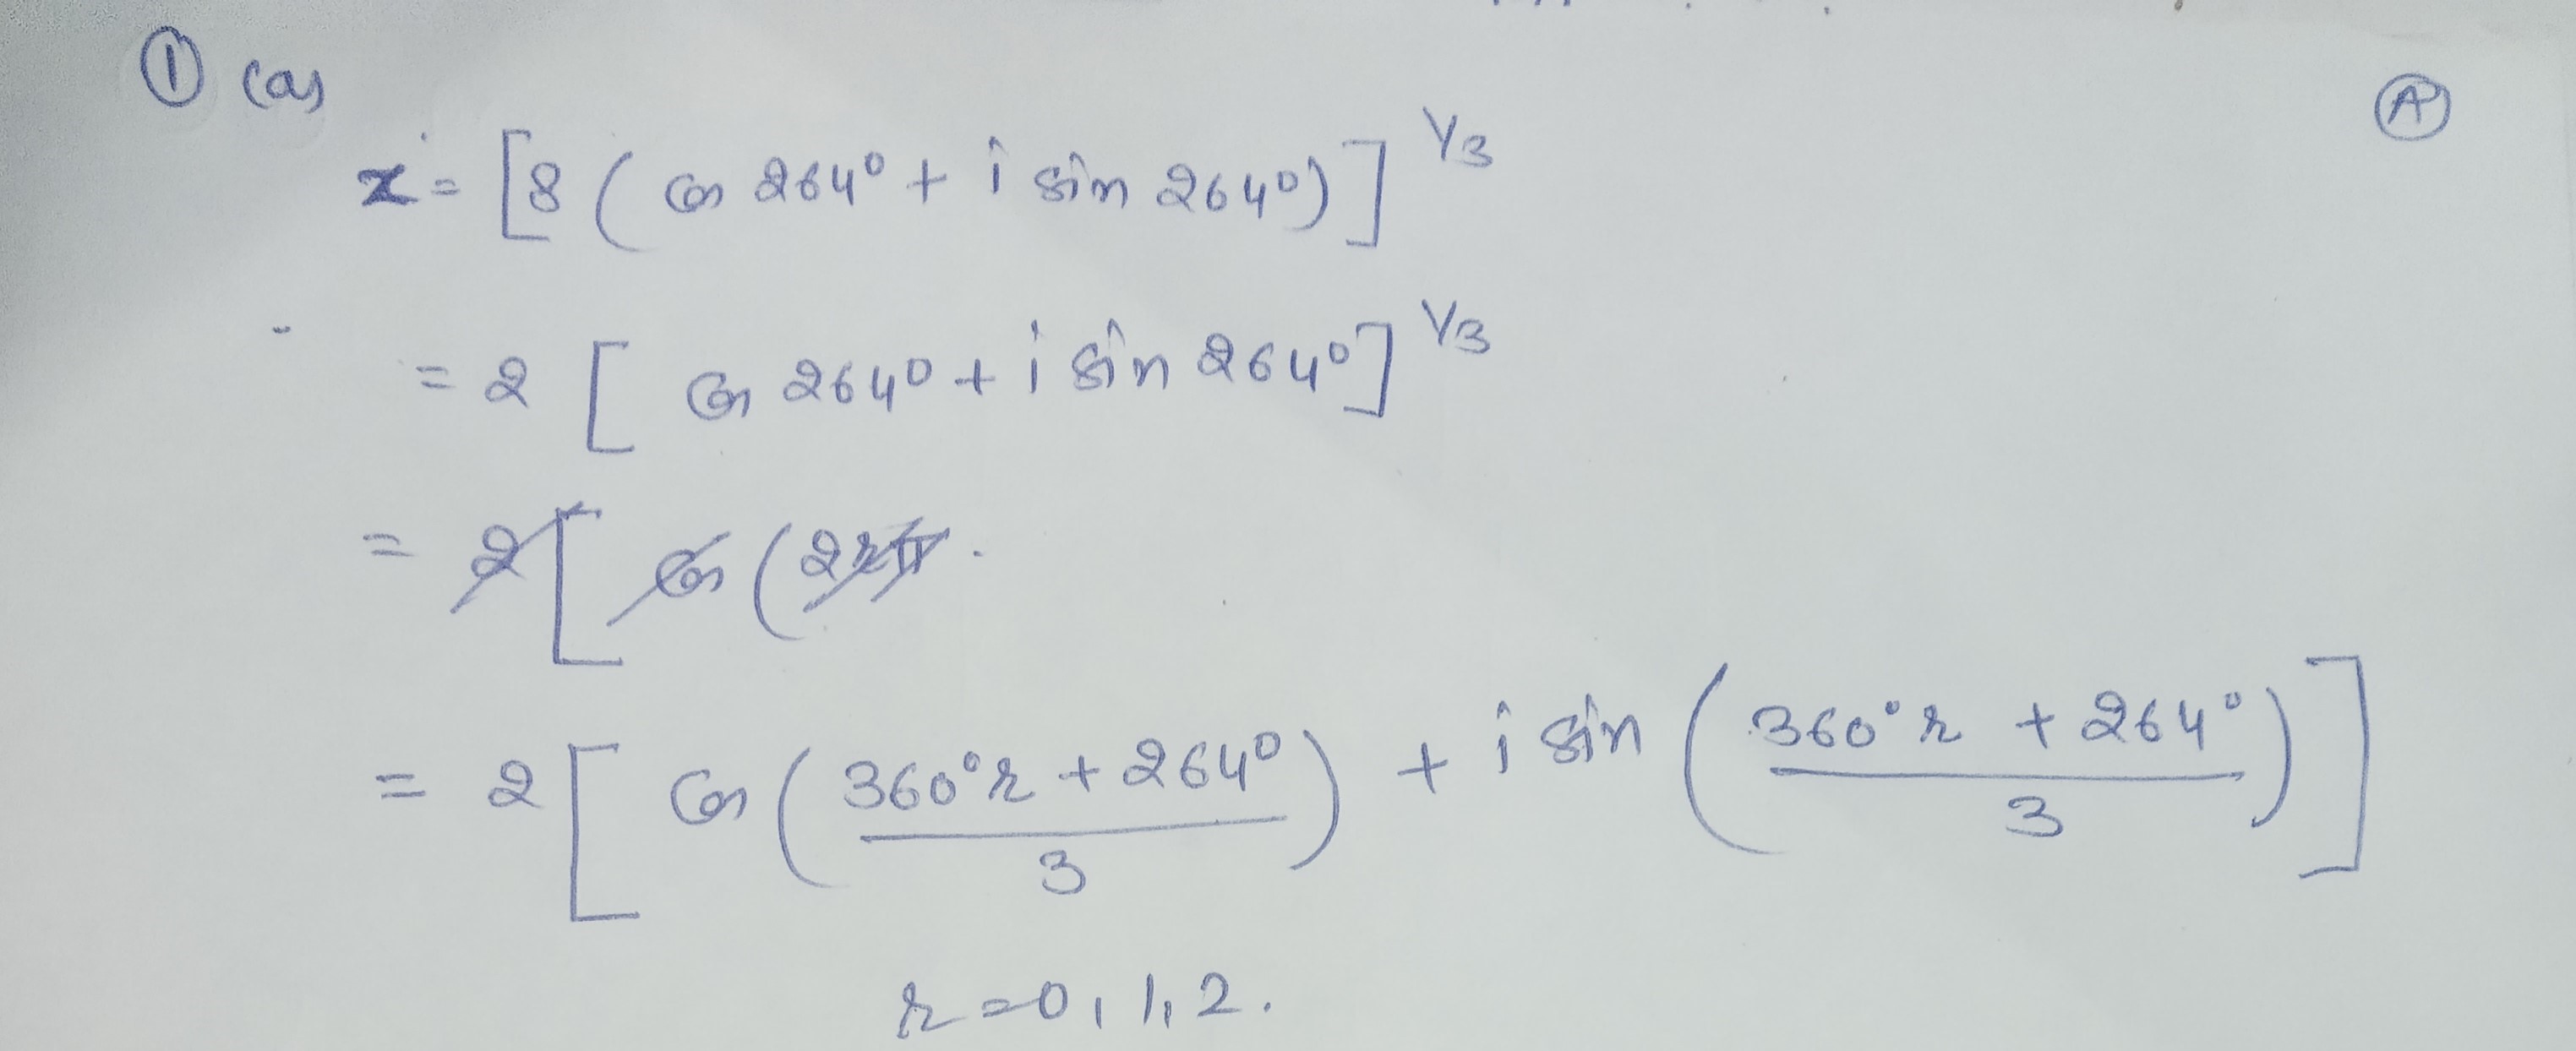 ① (a) Ⓐ
z = [8 (cos 264° + i sin 264°)]^1/3
= 2 [cos 264° + i sin 264°]^1/3
= 2 [cos (2rπ
= 2 [cos (360°r + 264° / 3) + i sin (360°r + 264° / 3)]
r = 0, 1, 2.